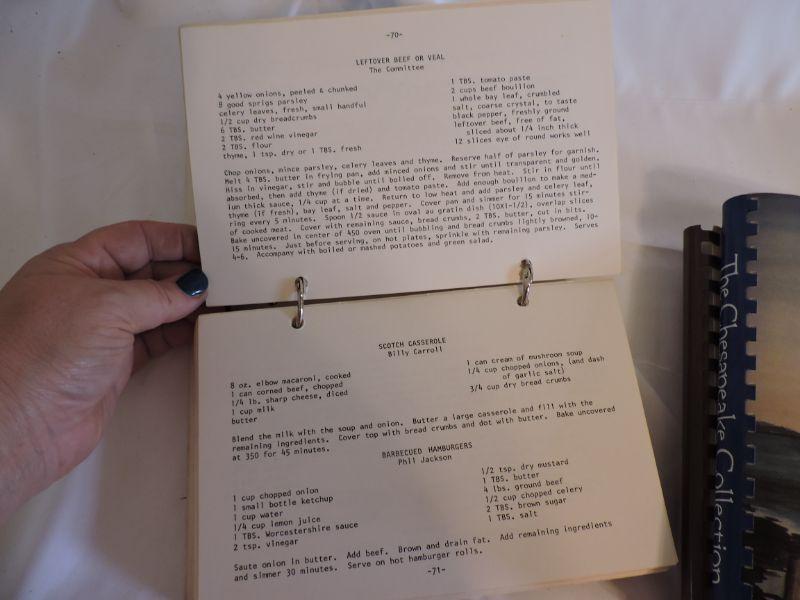 -70-
LEFTOVER BEEF OR VEAL
The Committee
4 yellow onions, peeled & chunked
8 good sprigs parsley
celery leaves, fresh, small handful
1/2 cup dry breadcrumbs
6 TBS. butter
2 TBS. red wine vinegar
2 TBS. flour
thyme, 1 tsp. dry or 1 TBS. fresh
1 TBS. tomato paste
2 cups beef bouillon
1 whole bay leaf, crumbled
salt, coarse crystal, to taste
black pepper, freshly ground
leftover beef, free of fat,
sliced about 1/4 inch thick
12 slices eye of round works well
Chop onions, mince parsley, celery leaves and thyme. Reserve half of parsley for garnish.
Melt 4 TBS. butter in frying pan, add minced onions and stir until transparent and golden.
Hiss in vinegar, stir and bubble until boiled off. Remove from heat. Stir in flour until
absorbed, then add thyme (if dried) and tomato paste. Add enough bouillon to make a med-
iun thick sauce, 1/4 cup at a time. Return to low heat and add parsley and celery leaf,
thyme (if fresh), bay leaf, salt and pepper. Cover pan and simmer for 15 minutes stir-
ring every 5 minutes. Spoon 1/2 sauce in oval au gratin dish (10X1-1/2), overlap slices
of cooked meat. Cover with remaining sauce, bread crumbs, 2 TBS. butter, cut in bits.
Bake uncovered in center of 450 oven until bubbling and bread crumbs lightly browned, 10-
15 minutes. Just before serving, on hot plates, sprinkle with remaining parsley. Serves
4-6. Accompany with boiled or mashed potatoes and green salad.
SCOTCH CASSEROLE
Billy Carroll
8 oz. elbow macaroni, cooked
1 can corned beef, chopped
1/4 lb. sharp cheese, diced
1 cup milk
butter
1 can cream of mushroom soup
1/4 cup chopped onions, (and dash
of garlic salt)
3/4 cup dry bread crumbs
Blend the milk with the soup and onion. Butter a large casserole and fill with the
remaining ingredients. Cover top with bread crumbs and dot with butter. Bake uncovered
at 350 for 45 minutes.
BARBECUED HAMBURGERS
Phil Jackson
1 cup chopped onion
1 small bottle ketchup
1 cup water
1/4 cup lemon juice
1 TBS. Worcestershire sauce
2 tsp. vinegar
1/2 tsp. dry mustard
1 TBS. butter
4 lbs. ground beef
1/2 cup chopped celery
2 TBS. brown sugar
1 TBS. salt
Saute onion in butter. Add beef. Brown and drain fat. Add remaining ingredients
and simmer 30 minutes. Serve on hot hamburger rolls.
-71-
The Chesapeake Collection